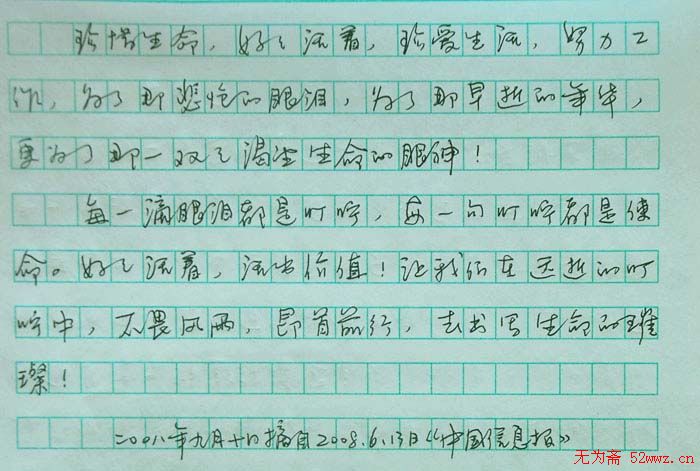 珍惜生命，好好活着，珍爱生活，努力工
作，为了那悲怆的眼泪，为了那早逝的年华，
更为了那一双双渴望生命的眼神！
每一滴眼泪都是叮咛，每一句叮咛都是使
命。好好活着，活出价值！让我们在远逝的叮
咛中，不畏风雨，昂首前行，去书写生命的璀
璨！
二〇〇八年九月十日摘自2008.6.13日《中国信息报》
无为斋 52wwz.cn